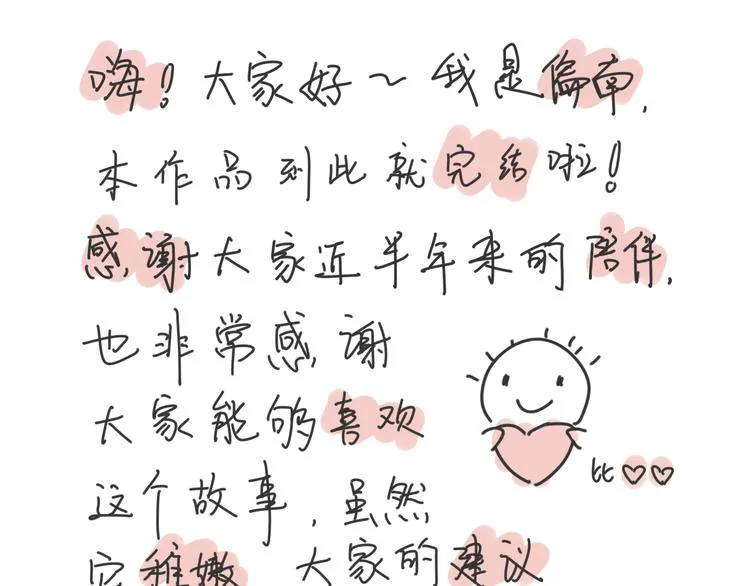 嗨！大家好～我是偏南，
本作品到此就完结啦！
感谢大家近半年来的陪伴，
也非常感谢
大家能够喜欢
比♡♡
这个故事，虽然
它稚嫩 大家的建议